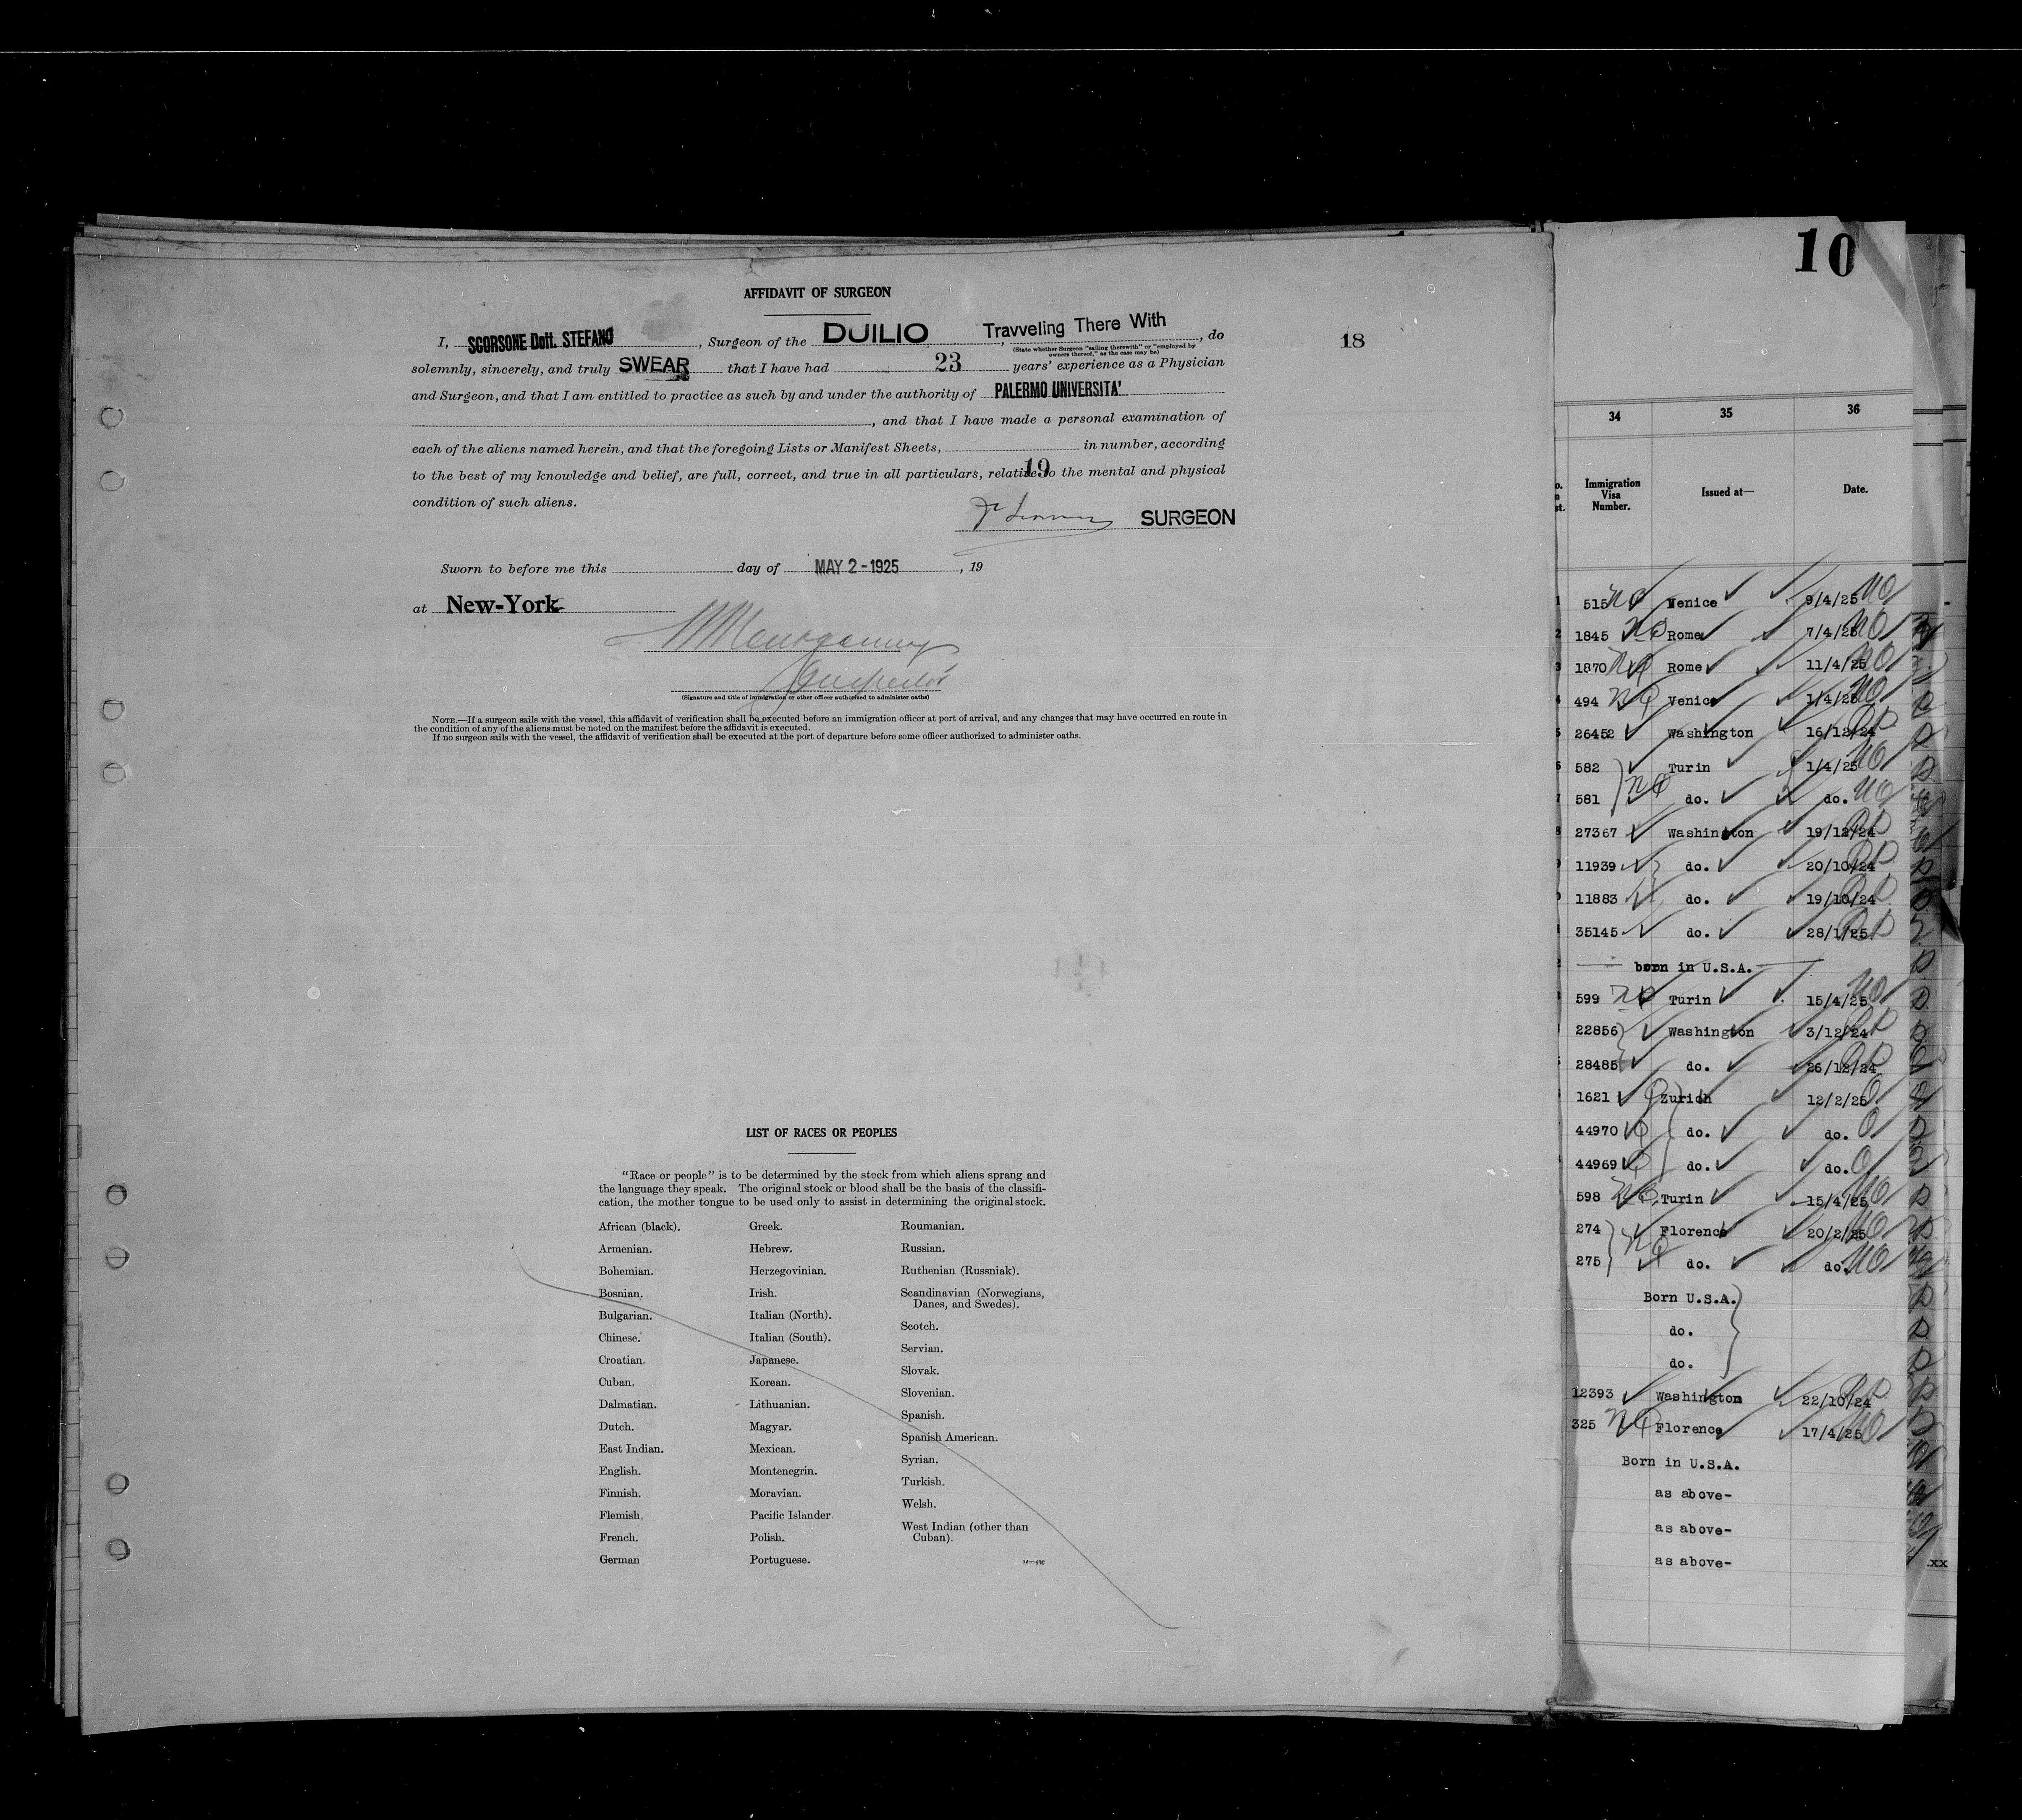 AFFIDAVIT OF SURGEON
I, SGORSONE Dott. STEFANO, Surgeon of the DUILIO, Travveling There With, do
(State whether Surgeon "sailing therewith" or "employed by
owners thereof," as the case may be)
solemnly, sincerely, and truly SWEAR that I have had 23 years' experience as a Physician
and Surgeon, and that I am entitled to practice as such by and under the authority of PALERMO UNIVERSITA'
, and that I have made a personal examination of
each of the aliens named herein, and that the foregoing Lists or Manifest Sheets, in number, according
19
to the best of my knowledge and belief, are full, correct, and true in all particulars, relative to the mental and physical
condition of such aliens.
SURGEON
Sworn to before me this day of MAY 2-1925, 19
at New-York
Inspector
(Signature and title of immigration or other officer authorized to administer oaths)
NOTE.—If a surgeon sails with the vessel, this affidavit of verification shall be executed before an immigration officer at port of arrival, and any changes that may have occurred en route in
the condition of any of the aliens must be noted on the manifest before the affidavit is executed.
If no surgeon sails with the vessel, the affidavit of verification shall be executed at the port of departure before some officer authorized to administer oaths.
18
LIST OF RACES OR PEOPLES
"Race or people" is to be determined by the stock from which aliens sprang and
the language they speak. The original stock or blood shall be the basis of the classifi-
cation, the mother tongue to be used only to assist in determining the original stock.
African (black).
Armenian.
Bohemian.
Bosnian.
Bulgarian.
Chinese.
Croatian.
Cuban.
Dalmatian.
Dutch.
East Indian.
English.
Finnish.
Flemish.
French.
German
Greek.
Hebrew.
Herzegovinian.
Irish.
Italian (North).
Italian (South).
Japanese.
Korean.
Lithuanian.
Magyar.
Mexican.
Montenegrin.
Moravian.
Pacific Islander
Polish.
Portuguese.
Roumanian.
Russian.
Ruthenian (Russniak).
Scandinavian (Norwegians,
Danes, and Swedes).
Scotch.
Servian.
Slovak.
Slovenian.
Spanish.
Spanish American.
Syrian.
Turkish.
Welsh.
West Indian (other than
Cuban).
10
34 35 36
Immigration
Visa
Number.
Issued at—
Date.
515 Venice 9/4/25
1845 Rome 7/4/25
1870 Rome 11/4/25
494 Venice 1/4/25
26452 Washington 16/12/24
582 Turin 1/4/25
581 do. do.
27367 Washington 19/12/24
11939 do. 20/10/24
11883 do. 19/10/24
35145 do. 28/1/25
born in U.S.A.
599 Turin 15/4/25
22856 Washington 3/12/24
28485 do. 26/12/24
1621 Zurich 12/2/25
44970 do. do.
44969 do. do.
598 Turin 15/4/25
274 Florence 20/2/25
275 do. do.
Born U.S.A.
do.
do.
12393 Washington 22/10/24
325 Florence 17/4/25
Born in U.S.A.
as above-
as above-
as above-
xx